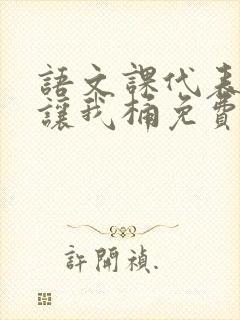 語文課代表
讓我桶免費
許開禎.